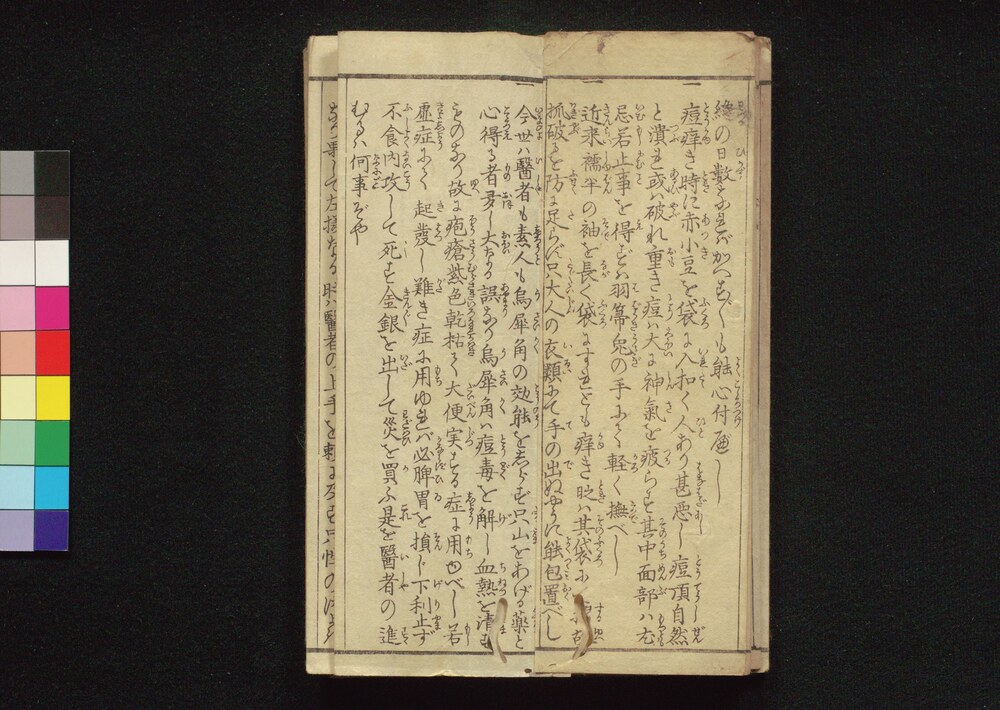 終の日数なれバかへす〲も能心付べし
一 痘痒き時に赤小豆を袋に入扣く人あり甚悪し痘頂自然
と潰れ或ハ破れ重き痘ハ大に神氣を疲らす其中面部ハ尤
忌若止事を得ずハ羽箒兎の手にて軽く撫べし
一 近来襦半の袖を長く袋にすれども痒き時ハ其袋にて
抓破るを防に足らず只大人の衣類にて手の出ぬやうに能包置べし
一 今世ハ醫者も素人も烏犀角の効能をしらず只山をあげる薬と
心得る者多し大なる誤なり烏犀角ハ痘毒を解し血熱を清も
ものなり故に疱瘡紫色乾枯て大便実する症に用ゆべし若
虚症にて起發し難き症に用ゆれバ必脾胃を損じ下利止ず
不食内攻して死す金銀を出して災を買ふ是を醫者の進
むるハ何事ぞや
時ハ醫者の上手を頼